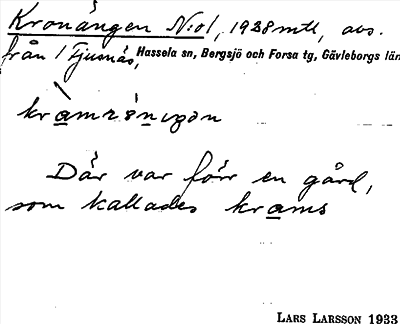 Kronängen N:o1, 1938 mtl, avs.
från 1 Fjusnäs, Hassela sn, Bergsjö och Forsa tg, Gävleborgs län
Där var förr en gård,
som kallades krams
LARS LARSSON 1933